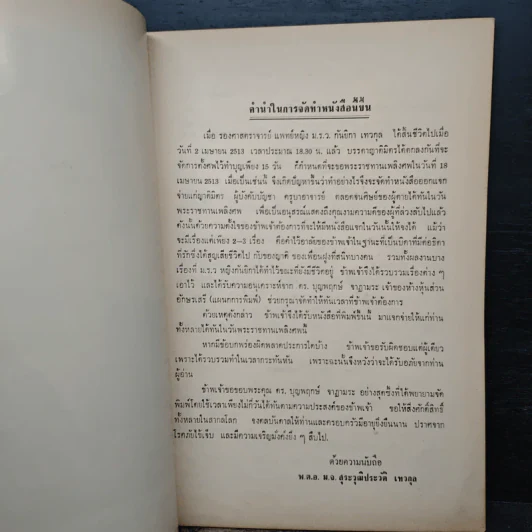 คำนำในการจัดทำหนังสือนี้ขึ้น
เมื่อ รองศาสตราจารย์ แพทย์หญิง ม.ร.ว. กันยิกา เทวกุล ได้สิ้นชีวิตไปเมื่อ
วันที่ 2 เมษายน 2513 เวลาประมาณ 18.30 น. แล้ว บรรดาญาติมิตรได้ตกลงกันที่จะ
จัดการตั้งศพไว้ทำบุญเพียง 15 วัน ก็กำหนดที่จะขอพระราชทานเพลิงศพในวันที่ 18
เมษายน 2513 เมื่อเป็นเช่นนี้ จึงเกิดปัญหาขึ้นว่าทำอย่างไรจึงจะจัดทำหนังสือออกแจก
จ่ายแก่ญาติมิตร ผู้บังคับบัญชา ครูบาอาจารย์ ตลอดจนศิษย์ของผู้ตายได้ทันในวัน
พระราชทานเพลิงศพ เพื่อเป็นอนุสรณ์แสดงถึงคุณงามความดีของผู้ที่ล่วงลับไปแล้ว
ดังนั้นด้วยความตั้งใจของข้าพเจ้าต้องการที่จะให้มีหนังสือแจกในวันนั้นให้จงได้ แม้ว่า
จะมีเรื่องแต่เพียง 2–3 เรื่อง คือคำไว้อาลัยของข้าพเจ้าในฐานะที่เป็นบิดาที่มีต่อธิดา
ที่รักซึ่งได้สูญเสียชีวิตไป กับของญาติ ของเพื่อนฝูงที่สนิทบางคน รวมทั้งผลงานบาง
เรื่องที่ ม.ร.ว หญิงกันยิกาได้ทำไว้ขณะที่ยังมีชีวิตอยู่ ข้าพเจ้าจึงได้รวบรวมเรื่องต่าง ๆ
เอาไว้ และได้รับความอนุเคราะห์จาก ดร. บุญพฤกษ์ จาฏามระ เจ้าของห้างหุ้นส่วน
อักษรเสรี (แผนกการพิมพ์) ช่วยกรุณาจัดทำให้ทันเวลาที่ข้าพเจ้าต้องการ
ด้วยเหตุดังกล่าว ข้าพเจ้าจึงได้รับหนังสือที่พิมพ์ขึ้นนี้ มาแจกจ่ายให้แก่ท่าน
ทั้งหลายได้ทันในวันพระราชทานเพลิงศพนี้
หากมีข้อบกพร่องผิดพลาดประการใดบ้าง ข้าพเจ้าขอรับผิดชอบแต่ผู้เดียว
เพราะได้รวบรวมทำในเวลากระทันหัน เพราะฉะนั้นจึงหวังว่าจะได้รับอภัยจากท่าน
ผู้อ่าน
ข้าพเจ้าขอขอบพระคุณ ดร. บุญพฤกษ์ จาฏามระ อย่างสุดซึ้งที่ได้พยายามจัด
พิมพ์โดยใช้เวลาเพียงไม่กี่วันได้ทันตามความประสงค์ของข้าพเจ้า ขอให้สิ่งศักดิ์สิทธิ์
ทั้งหลายในสากลโลก จงดลบันดาลให้ท่านและครอบครัวมีอายุยั่งยืนนาน ปราศจาก
โรคภัยไข้เจ็บ และมีความเจริญมั่งคั่งยิ่ง ๆ สืบไป.
ด้วยความนับถือ
พ.ต.อ. ม.จ. สุระวุฒิประวัติ เทวกุล